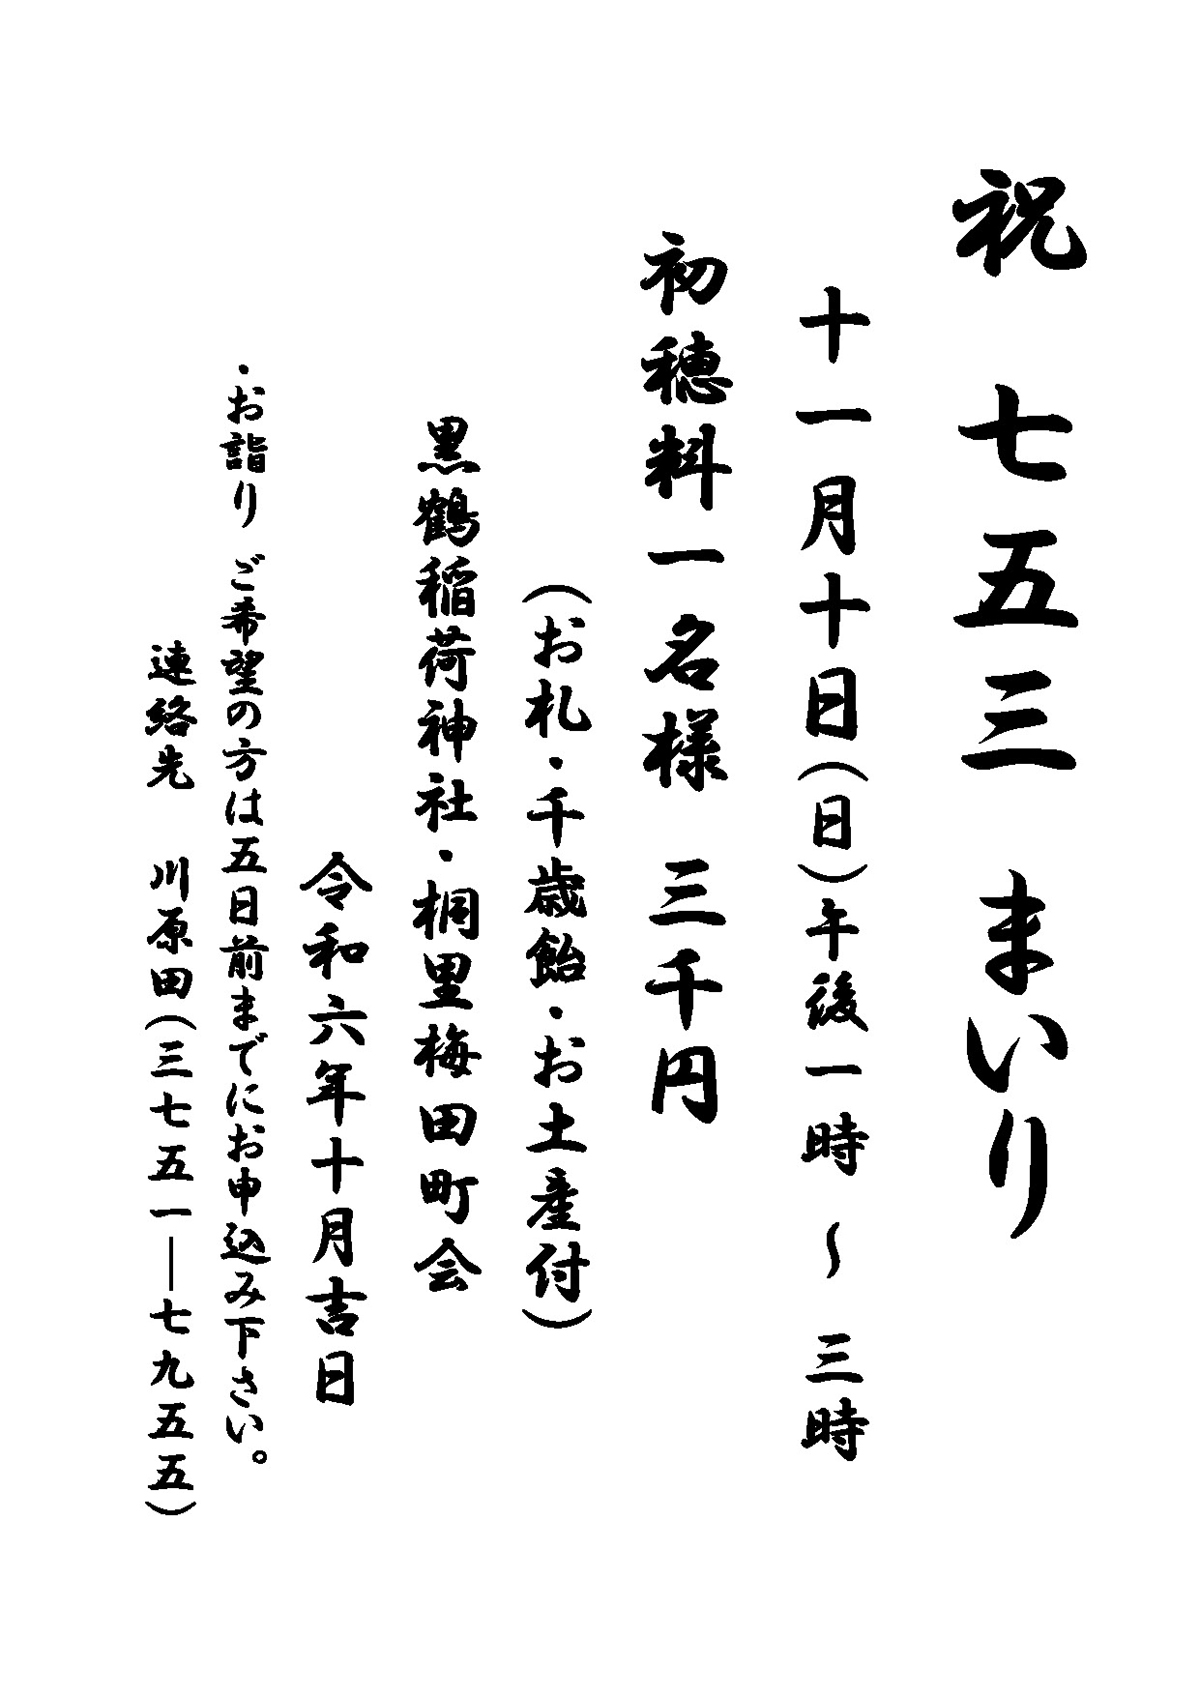 祝 七五三 まいり
十一月十日(日)午後一時 〜 三時
初穂料一名様 三千円
(お札・千歳飴・お土産付)
黒鶴稲荷神社・桐里梅田町会
令和六年十月吉日
・お詣り ご希望の方は五日前までにお申込み下さい。
連絡先 川原田(三七五一―七九五五)